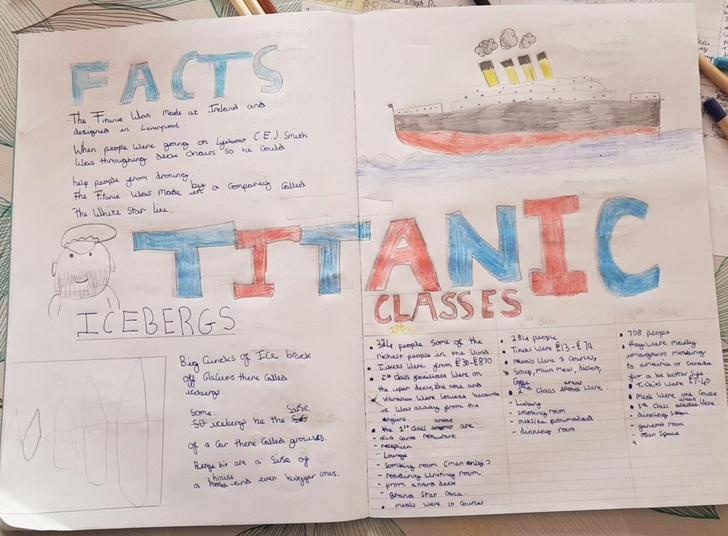 FACTS
The Titanic Was Made at Ireland and
designed in Leverpool.
When people were going on Lifeboat C.E.J. Smith
Was throughing deck chairs so he could
help people from droning.
The Titanic Was made by a Company Called
The White Star Line.
TITANIC
ICEBERGS
Big Chunks of Ice break
off Glaciers there called
icebergs
Some
icebergs be the Sise
of a Car there Called growlers.
Bergy bit are a Sise of
a house and even bigger ones.
CLASSES
1st
324 people Some of the
richest people in the World.
Tickets Were from £30-£870
1st class facilities Were on
the uper deck, the noise and
Vibration Were Lowest because
it Was away from the
engine.
the 1st class areas are:
- ala carte restaurant
- reception
- Lounge
- Somking room (men only)
- reading Writing room
- prom anard deck
- Grand Star Case
meals Were 10 Courses.
284 people.
Tikets Were £13-£79
Meals Were 3 Courses,
Soup, main meal, disert,
2nd class areas Were:
- Libary
- smoking room
- outside promanard
- dinning room
708 people
they Were mostly
emegrants
to america or Canada
for a be better life
Tickets Were £7.40
Meals Were one Course
3rd class areas Were:
- dinning
- general room
- open Space